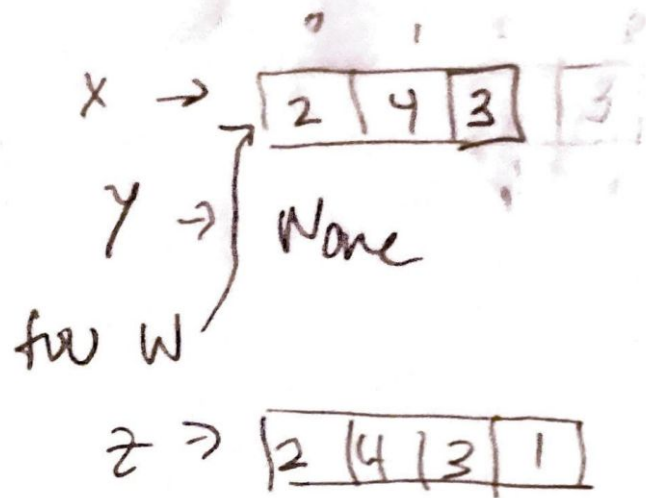 0 1
x → 2 4 3 3
y → None
foo w
z → 2 4 3 1